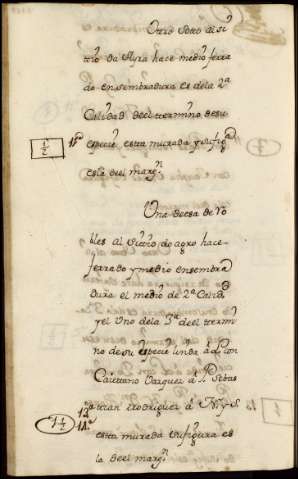 Otro Soto al si
tio da Ayra hace medio ferra
do en sembradura es de la 2ª
Calidad del termino de su
especie esta murada y su fig
es la del marg.n
1/2
15ª
Una Deesa de Ro
bles al Sitio do agro hace
ferrado y medio en sembra
dura el medio de 2ª Calid.d
y el Uno de la 3ª del termi
no de su especie linda a L. con
Caietano Vazquez a P. Sebas
tian Rodriguez a N. y S.
esta murada su figura es
la del marg.n
1 1/2